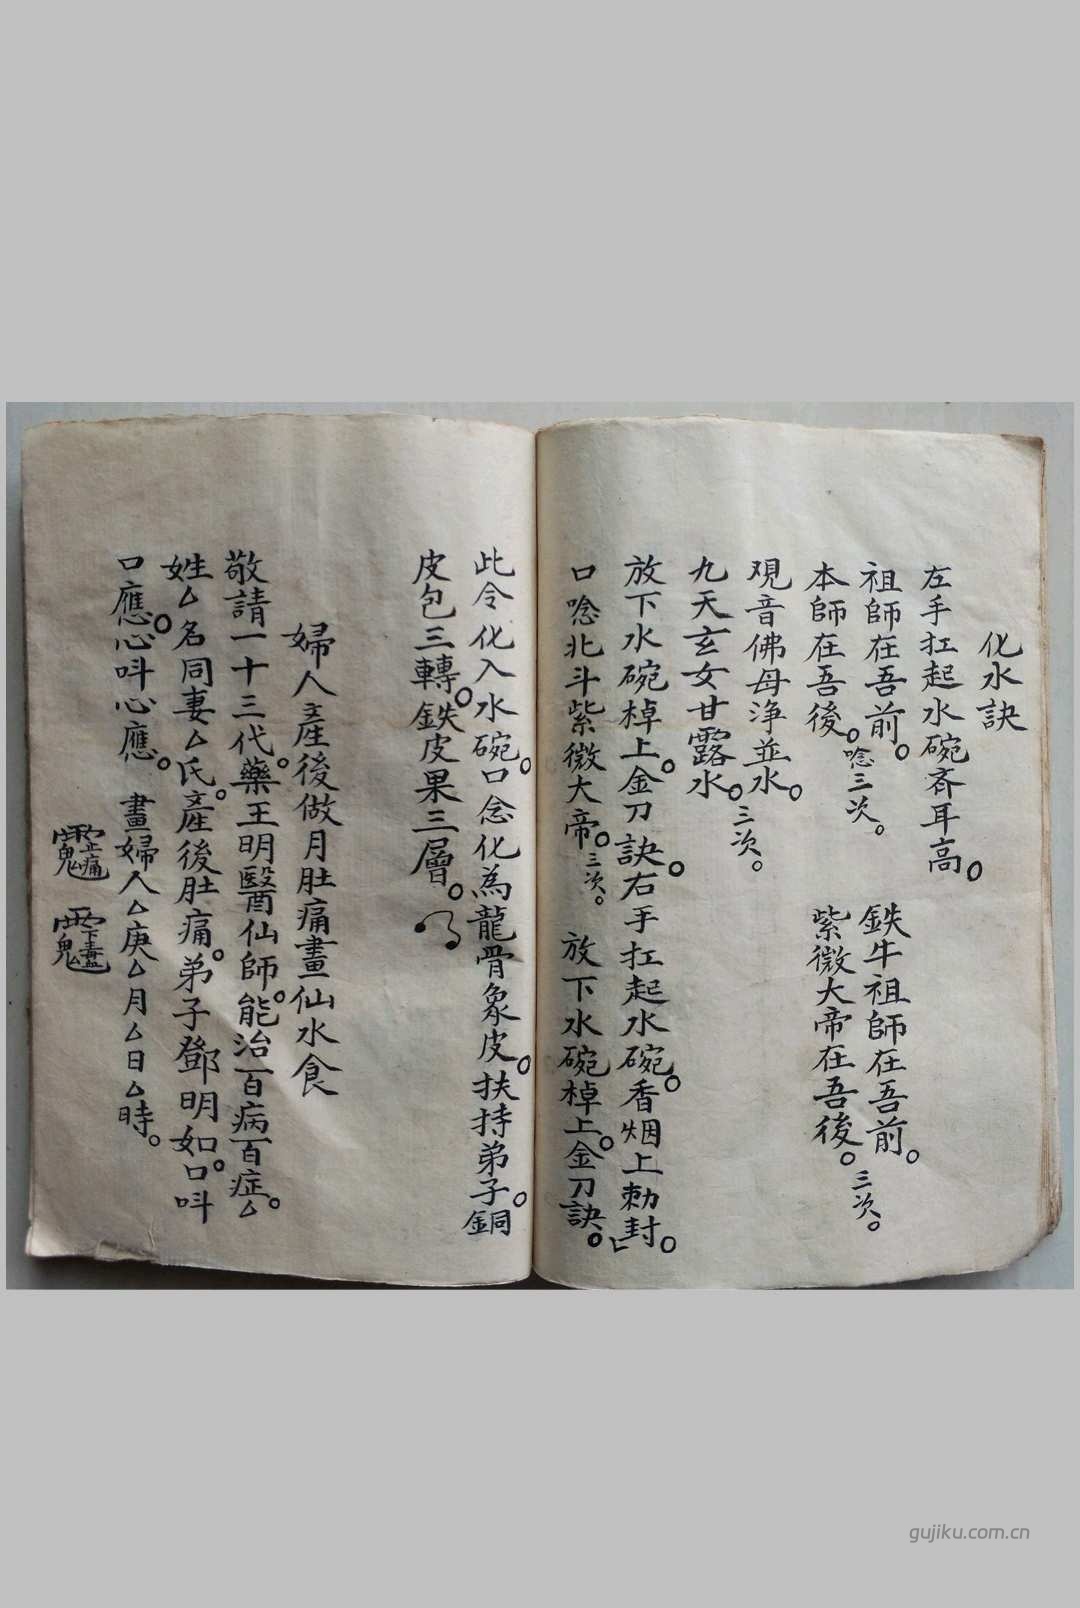 化水訣
左手扛起水碗斉耳高。
祖師在吾前。
本師在吾後。唸三次。
鉄牛祖師在吾前。
紫微大帝在吾後。三次。
观音佛母浄並水。
九天玄女甘露水。三次。
放下水碗棹上。金刀訣。右手扛起水碗。香烟上勅封。
口唸北斗紫微大帝。三次。 放下水碗棹上。金刀訣。
此令化入水碗。口念化為龍骨象皮。扶持弟子。銅
皮包三轉。鉄皮果三層。
婦人產後做月肚痛畫仙水食
敬請一十三代。藥王明醫仙師。能治百病百症。△
姓△名同妻△氏。產後肚痛。弟子鄧明如。口呌
口應。心呌心應。 畫婦人△庚△月△日△時。
gujiku.com.cn